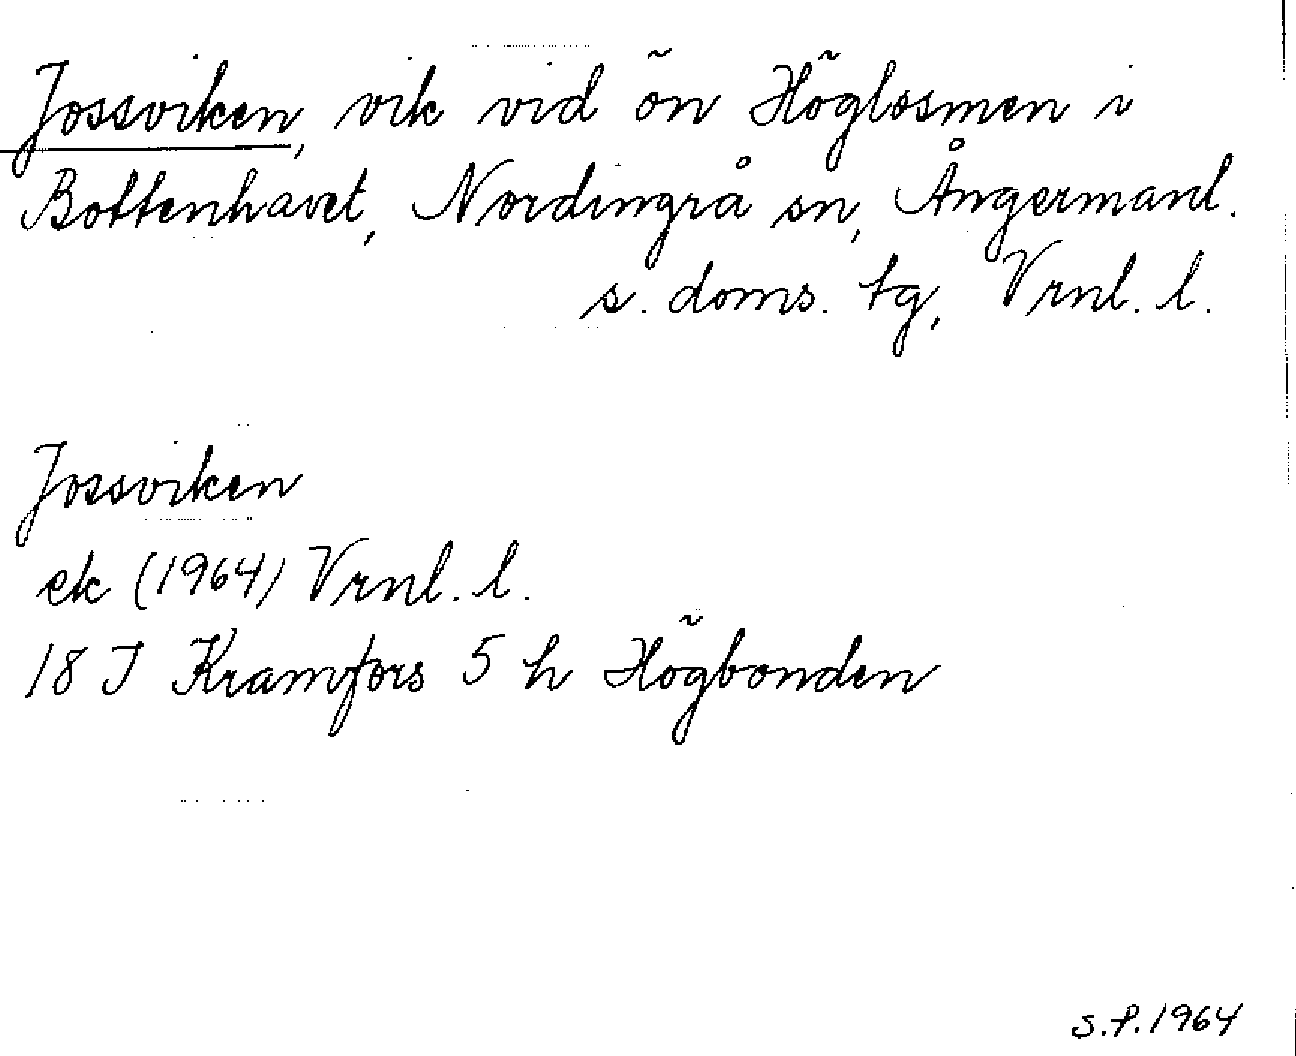 Jossviken, vik vid ön Höglosmen i
Bottenhavet, Nordingrå sn, Ångermanl.
s. doms. tg, Vrnl. l.
Jossviken
ek (1964) Vrnl. l.
18 J Kramfors 5 h Högbonden
S.P. 1964